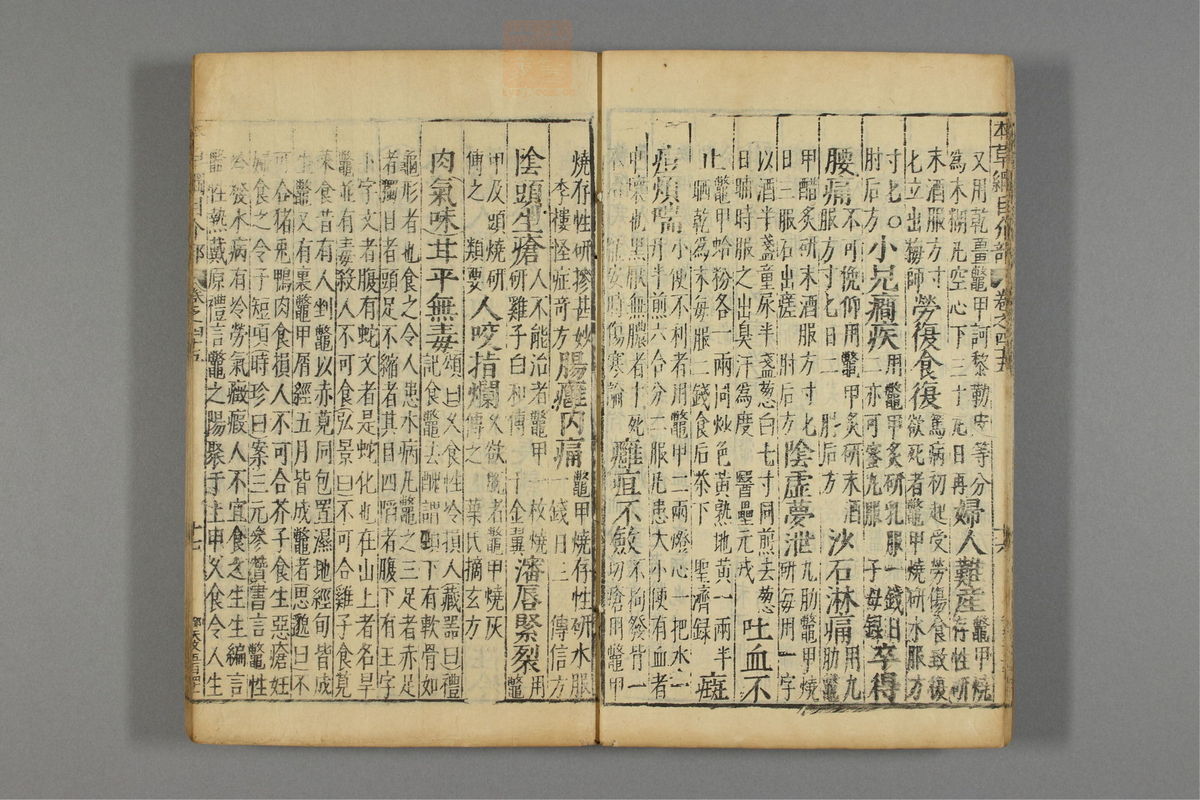 本草綱目介部　卷之四十五　十六
又用乾薑鱉甲訶黎勒皮等分
為末糊丸空心下三十丸日再
婦人難產
鱉甲燒
存性研
末酒服方寸
匕立出梅師
勞復食復
篤病初起受勞傷食致復
欲死者鱉甲燒研水服方
寸匕○
肘后方
小兒癇疾
用鱉甲炙研乳服一錢日
二亦可蜜丸服　子母錄
卒得
腰痛
不可俛仰用鱉甲炙研末酒
服方寸匕日二　肘后方
沙石淋痛
用九
肋鱉
甲醋炙研末酒服方寸匕
日三服石出瘥　肘后方
陰虛夢泄
九肋鱉甲燒
研每用一字
以酒半盞童尿半盞葱白七寸同煎去葱
日晡時服之出臭汗為度　醫壘元戎
吐血不
止
鱉甲蛤粉各一兩同炒色黃熟地黃一兩半
晒乾為末每服二錢食后茶下　聖濟錄
癍
痘煩喘
小便不利者用鱉甲二兩燈心一把水一
升半煎六合分二服凡患大小便有血者
中壞也黑厭無膿者十死
安時傷寒論
癰疽不斂
不拘發背一
切瘡用鱉甲
燒存性研摻甚妙
李樓怪症奇方
腸癰內痛
鱉甲燒存性研水服
一錢日三　傳信方
陰頭生瘡
人不能治者鱉甲一枚燒
研雞子白和傅　千金翼
瀋唇緊裂
用
鱉
甲及頭燒研
傅之　類要
人咬指爛
久欲脫者鱉甲燒灰
傅之　葉氏摘玄方
肉氣味甘平無毒
頌曰久食性冷損人藏器曰禮
記食鱉去醜謂頸下有軟骨如
龜形者也食之令人患水病凡鱉之三足者赤足
者獨目者頭足不縮者其目四陷者腹下有王字
卜字文者腹有蛇文者是蛇化也在山上者名旱
鱉並有毒殺人不可食弘景曰不可合雞子食莧
菜食昔有人剉鱉以赤莧同包置濕地經旬皆成
生鱉又有裹鱉甲屑經五月皆成鱉者思邈曰不
可合猪兎鴨肉食損人不可合芥子食生惡瘡妊
婦食之令子短項時珍曰案三元參贊書言鱉性
冷發水病有冷勞氣癥瘕人不宜食之生生編言
鱉性熱戴原禮言鱉之陽聚于上甲久食令人生
本草綱目介部　卷之四十五　十七